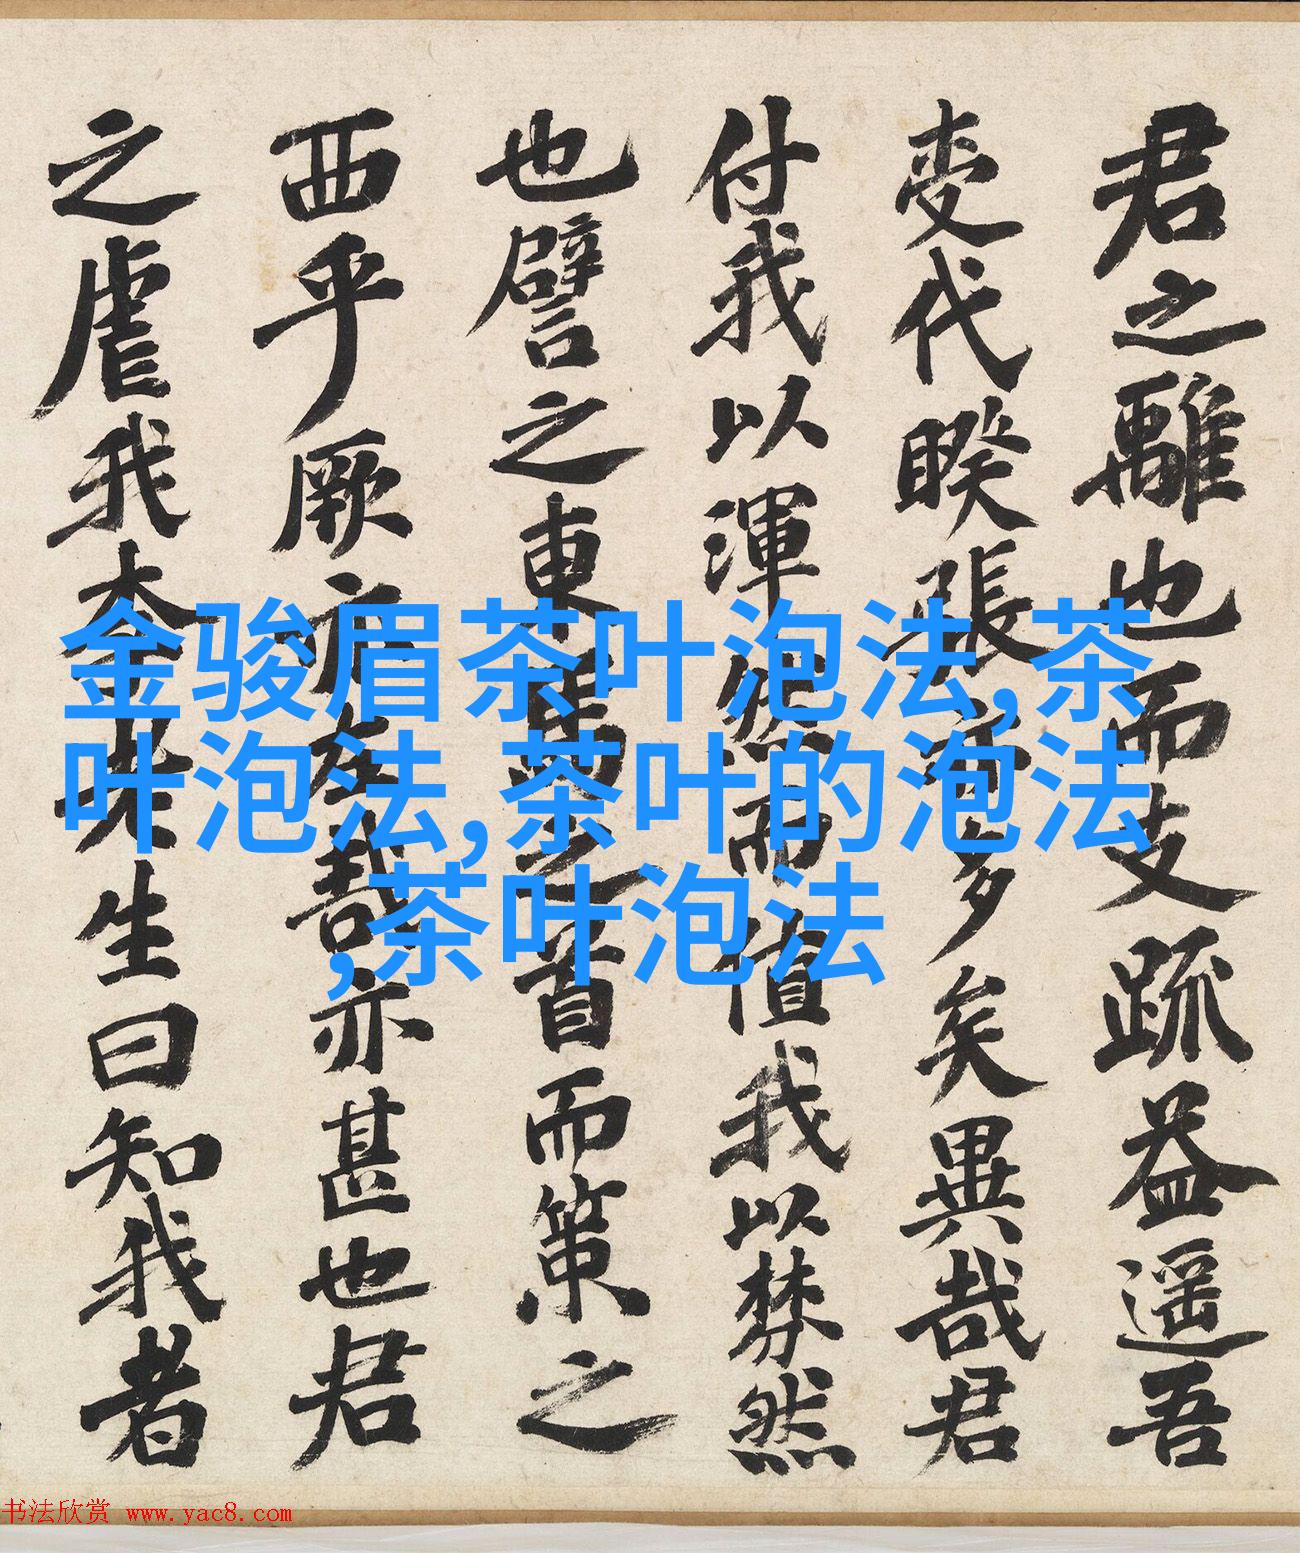 君之離也而支疏益遥吾
变代睽張多矣異哉君
付我以渾然而值我以棼然
也譬之東馬之首而策之
西乎厥左哉亦甚也君
之虐我太老生曰知我者
金骏眉茶叶泡法,茶
叶泡法,茶叶的泡法
,茶叶泡法
书法欣赏 www.yac8.com